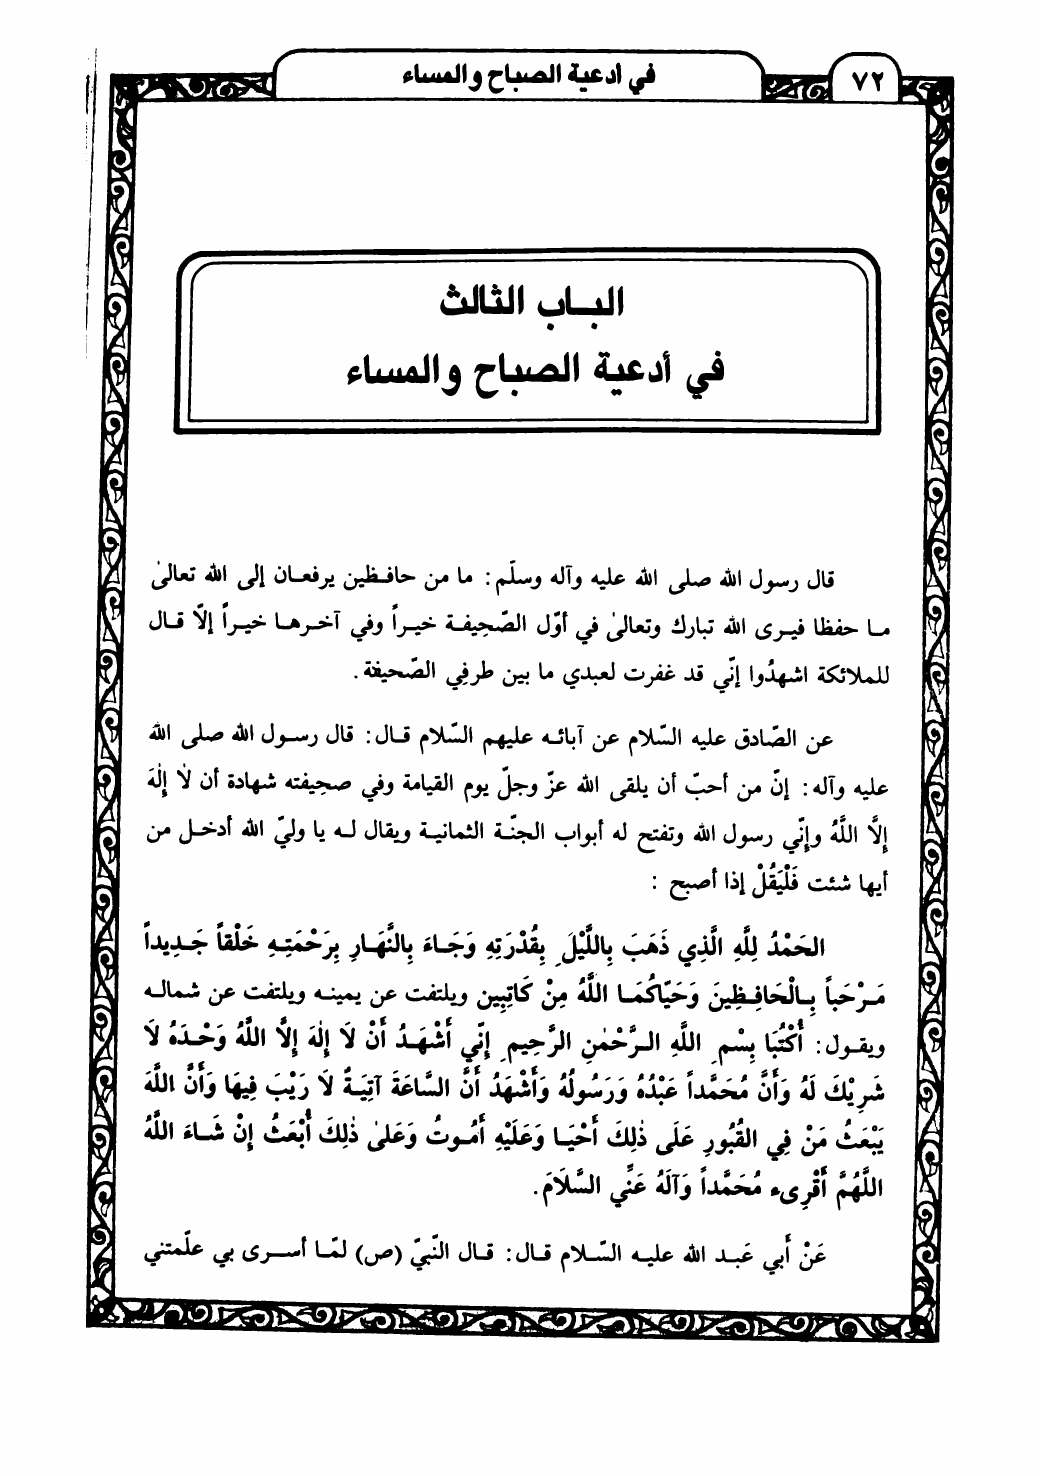 ٧٢
في أدعية الصباح والمساء
البـاب الثالث
في أدعية الصباح والمساء
قال رسول الله صلى الله عليه وآله وسلّم: ما من حافـظين يرفعـان إلى الله تعالىٰ
مـا حفظا فيـرى الله تبارك وتعالىٰ في أوّل الصّحِيفـة خيـراً وفي آخـرهـا خيـراً إلاّ قـال
للملائكة اشهدُوا إنّي قد غفرت لعبدي ما بين طرفِي الصّحيفة.
عن الصّادق عليه السّلام عن آبائـه عليهم السّلام قـال: قال رسـول الله صلى الله
عليه وآله: إنّ من أحبّ أن يلقى الله عزّ وجلّ يوم القيامة وفي صحِيفته شهادة أن لاٰ إلٰهَ
إلَّا اللَّهُ وإنّي رسول الله وتفتح له أبواب الجنّـة الثمانيـة ويقال لـه يا وليّ الله أدخـل من
أيها شئت فَلْيَقُلْ إذا أصبح :
الحَمْدُ لِلَّهِ الَّذِي ذَهَبَ بِاللَّيْلَ ِ بِقُدْرَتِهِ وَجَـاءَ بِالنَّهَـارِ بِرَحْمَتِـهِ خَلْقاً جَـدِيداً
مَـرْحَباً بِـالْحَافِـظِينَ وَحَيّاكُمَـا اللَّهُ مِنْ كَاتِبِين ويلتفت عن يمينـه ويلتفت عن شمالـه
ويقـول: أُكْتُبَا بِسْمِ اللَّهِ الـرَّحْمٰنِ الرَّحِيمِ إنّي أَشْهَـدُ أَنْ لاَ إِلٰهَ إِلاَّ اللَّهُ وَحْـدَهُ لاَ
شَرِيْكَ لَهُ وَأَنَّ مُحَمَّداً عَبْدُهُ وَرَسُولُهُ وَأَشْهَدُ أَنَّ السَّاعَةَ آتِيَـةٌ لاَ رَيْبَ فِيهَا وَأَنَّ اللَّهَ
يَبْعَثُ مَنْ فِي القُبُورِ عَلَى ذٰلِكَ أَحْيَـا وَعَلَيْهِ أَمُـوتُ وَعَلىٰ ذٰلِكَ أُبْعَثُ إنْ شَـاءَ اللَّهُ
اللَّهُمَّ أَقْرِىء مُحَمَّداً وَآلَهُ عَنِّي السَّلاَمَ.
عَنْ أَبي عَبـد الله عليـه السّـلام قـال: قـال النّبيّ (ص) لمّـا أسـرى بي علّمتني